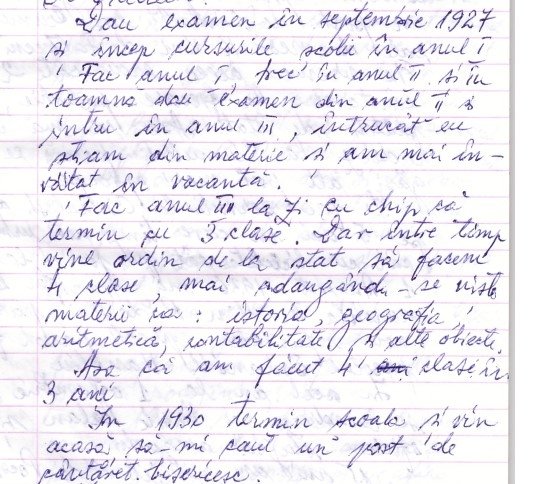 Dau examen în septembrie 1927
și încep cursurile școlii în anul I
Fac anul I trec în anul II și în
toamna dau examen din anul II și
intru în anul III, întrucât eu
știam din materie și am mai în-
vățat în vacanță.
Fac anul III la zi cu chip că
termin cu 3 clase. Dar între timp
vine ordin de la stat să facem
4 clase, mai adaugându-se niște
materii ca: istoria, geografia,
aritmetică, contabilitate și alte obiecte.
Așa că am făcut 4 ani clase în
3 ani
In 1930 termin școala și vin
acasă să-mi caut un post de
cântăreț bisericesc.